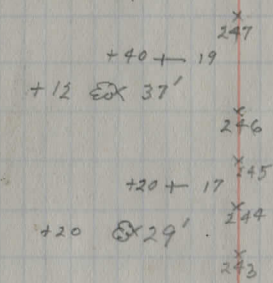 247
+40 + 19
+12 37'
246
245
+20 + 17
244
+20 29'
243